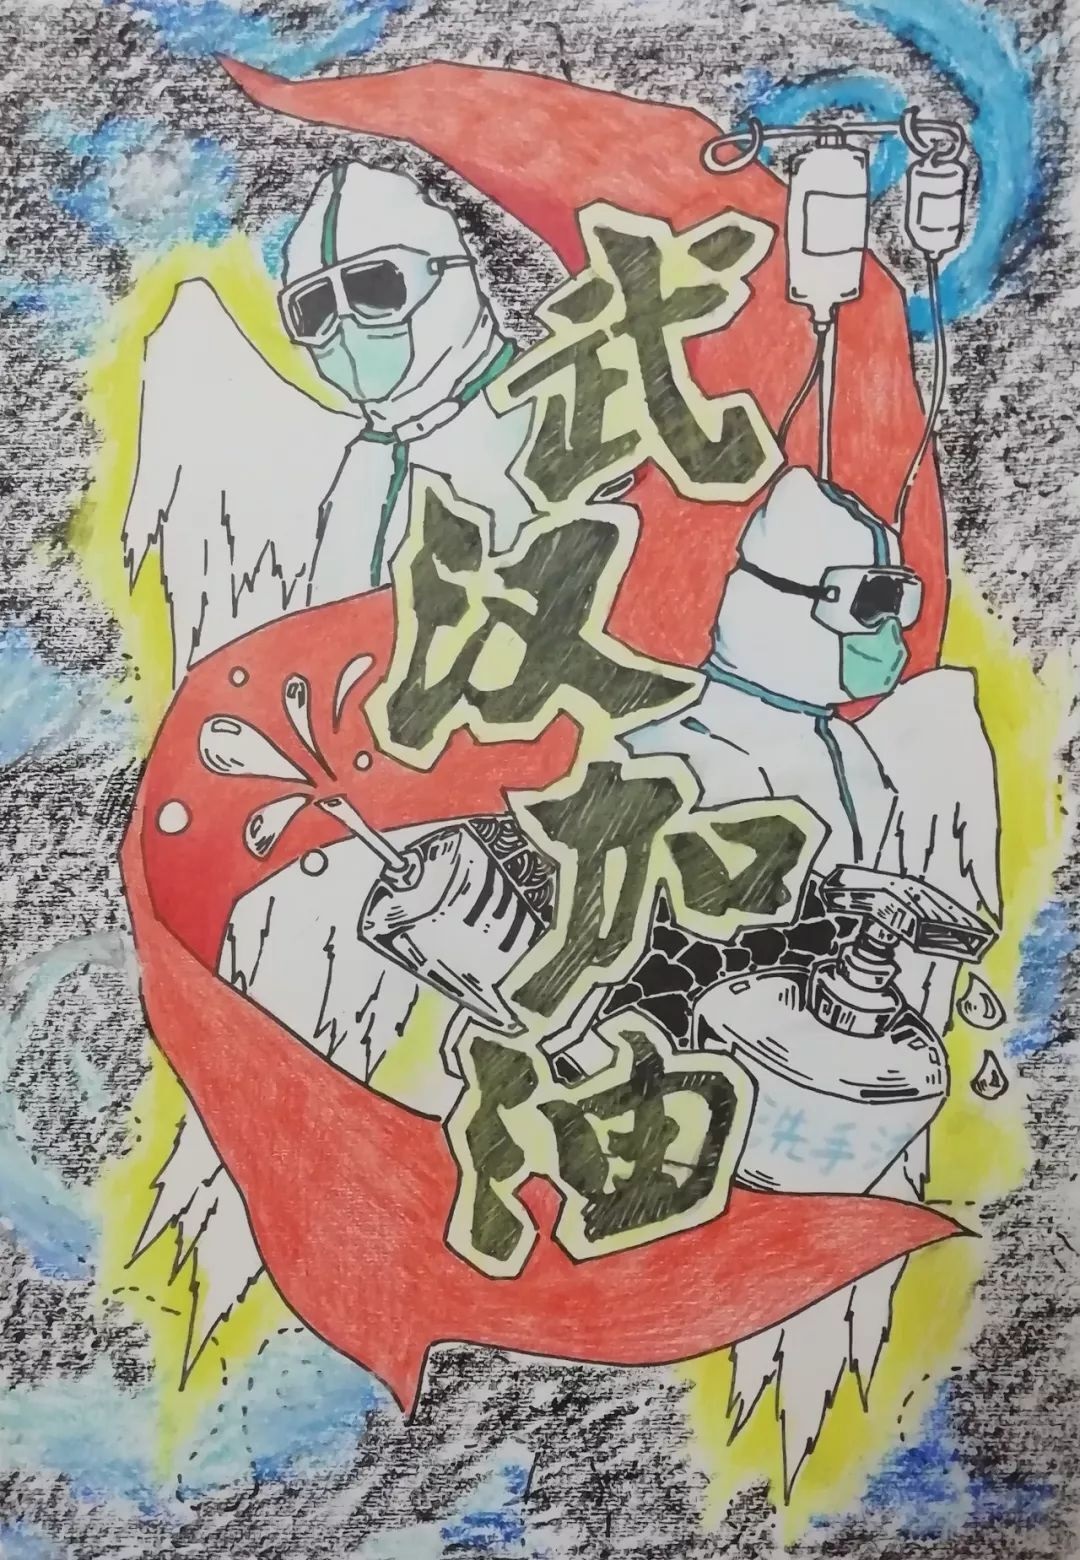 武
汉
加
油
洗手